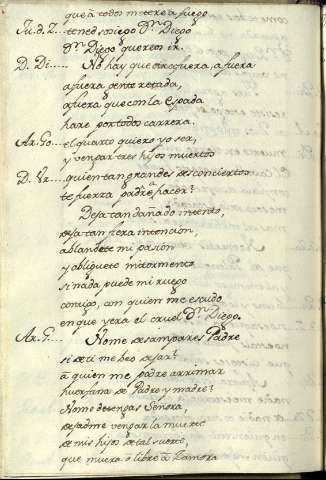 que a todos metere a fuego
Ju. d. Z. tened sosiego Dn. Diego
Dn. Diego quereis ir.
D. Di.... No hay que atras, afuera, afuera
afuera gente retada,
afuera que con la espada
hare por todos carrera.
Ar. Go... el quarto quiero yo ser,
y vengar tres hijos muertos
D. Ur... quien tan grandes desconciertos
te fuerza padre a hacer?
Deja tan dañado intento,
deja tan fiera intencion,
ablandete mi pasion
y obliguete mi tormento
si nada puede mi ruego
contigo, con quien me escudo
en que yera el cruel Dn. Diego.
Ar. G... No me desampares Padre
si de ti me beo dejar?
a quien me padre arrimar
huerfana de Padre y madre?
No me detengas Señora,
dejadme vengar la muerte
de mis hijos de tal suerte,
que muera o libre a Zamora